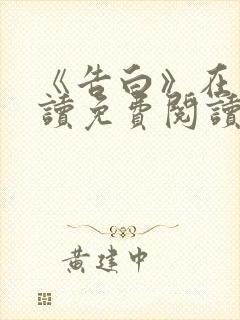 《告白》在
讀免費閱讀
黃建中